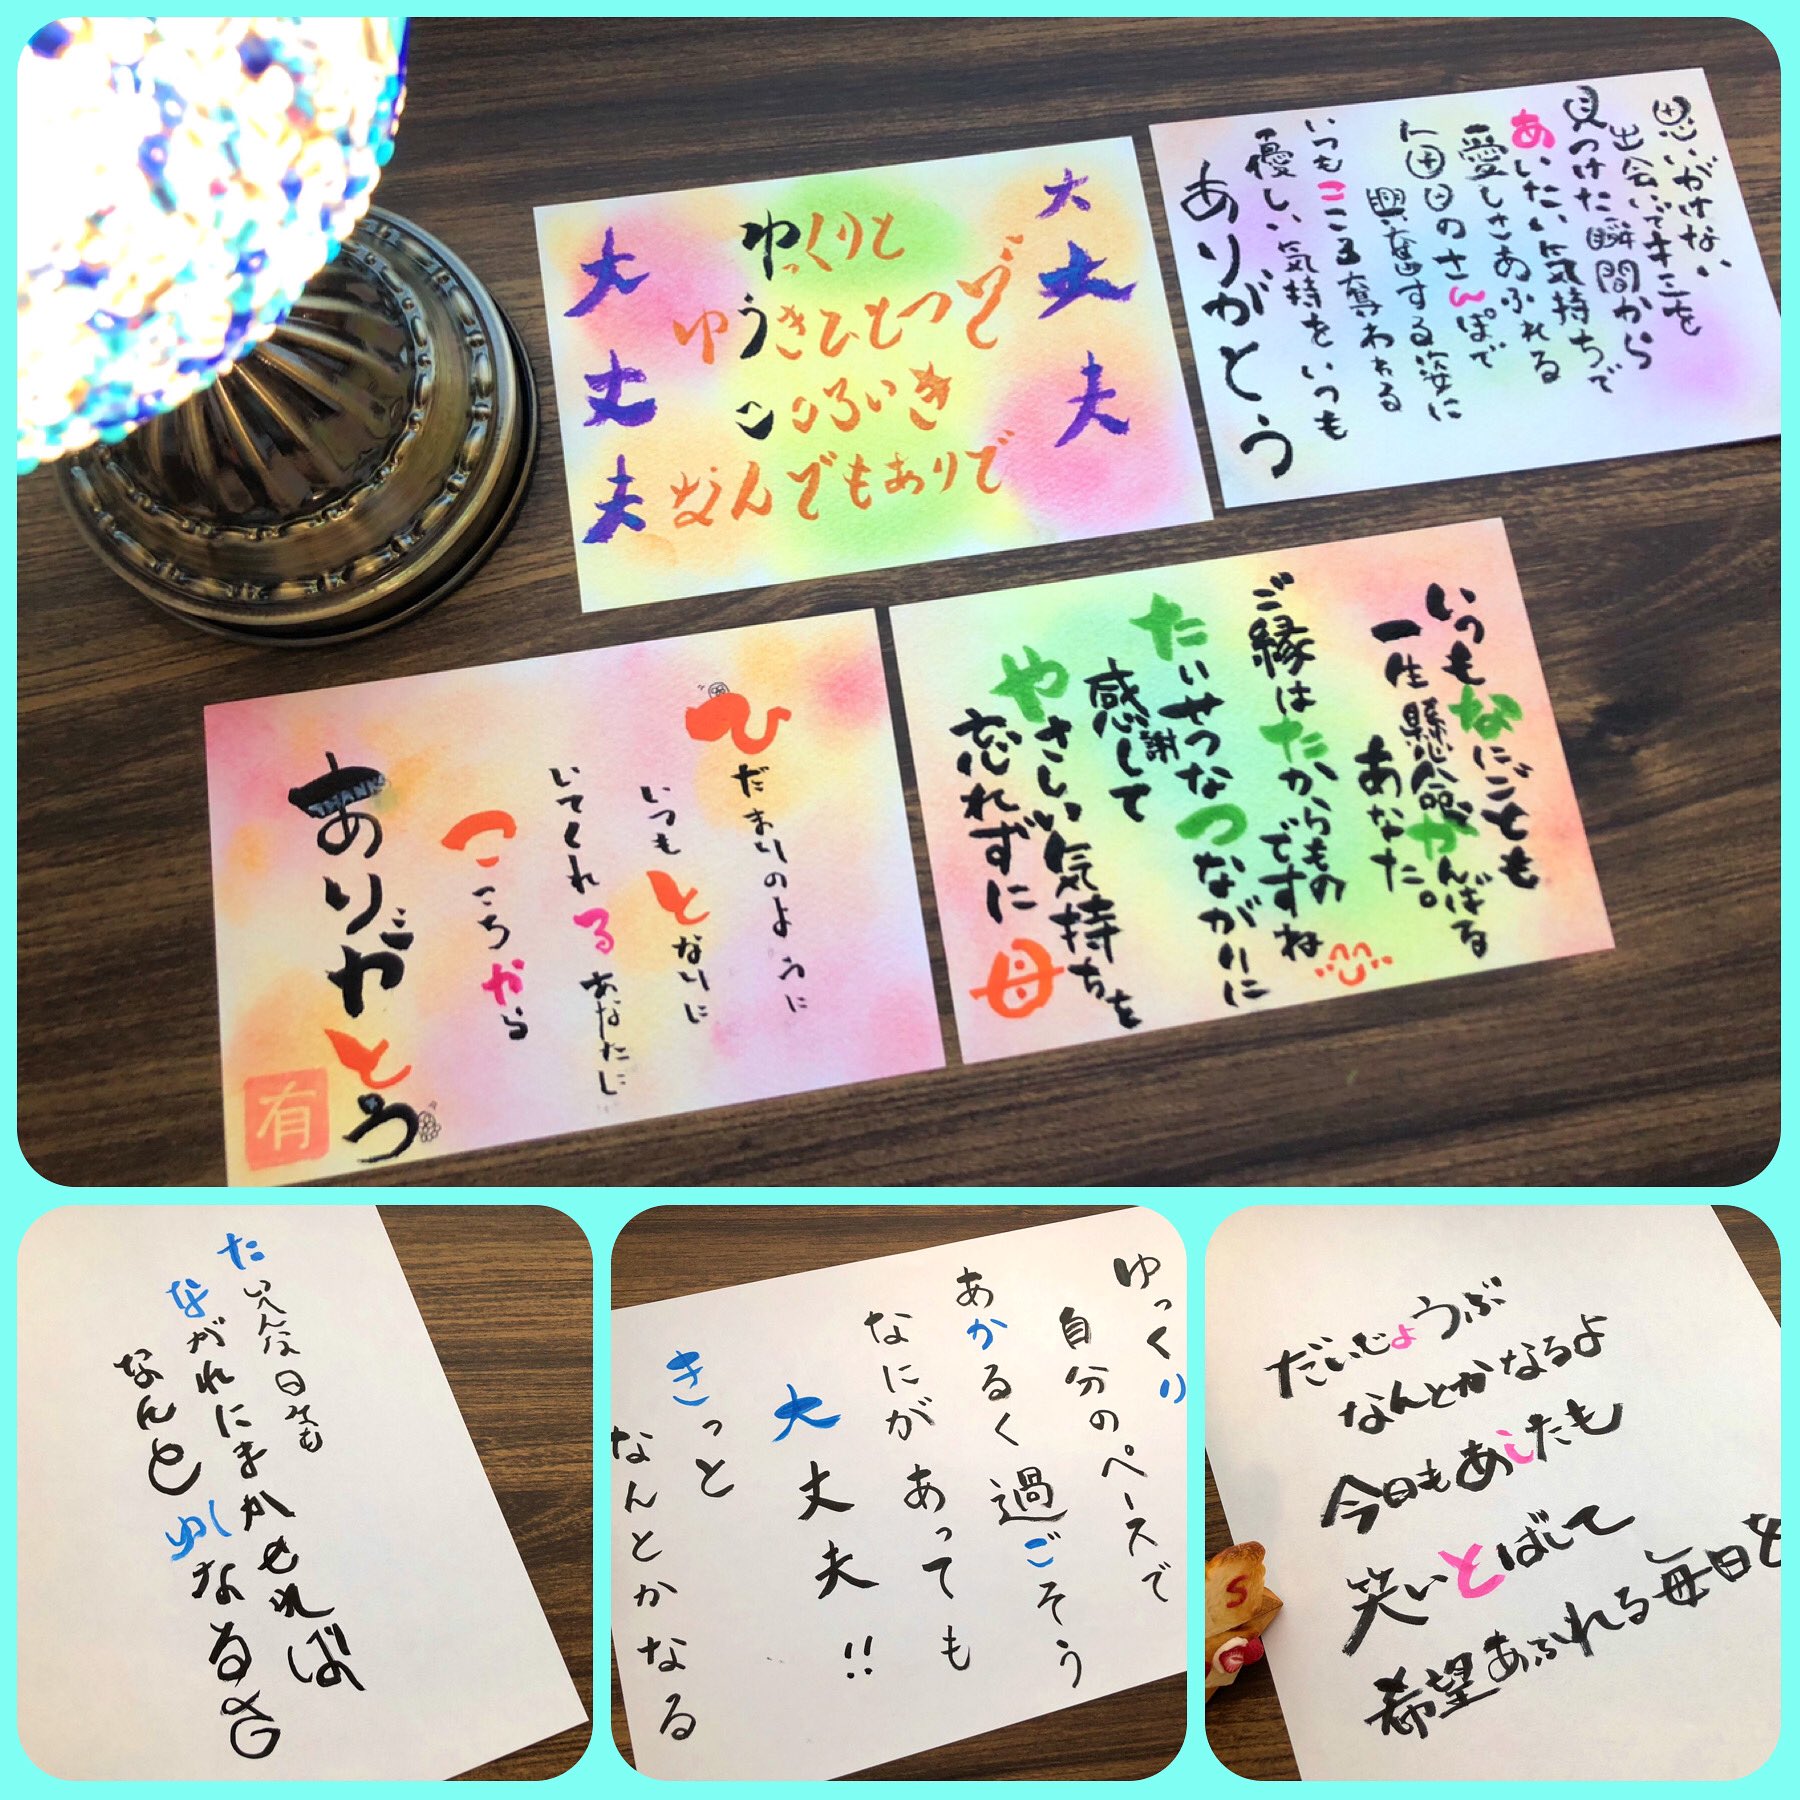 大丈夫
ゆっくりと
ゆうきひとつで
こころいき
なんでもありで
大丈夫
思いがけない
出会いでキミを
見つけた瞬間から
あいたい気持ちで
愛しさあふれる
毎日のさんぽで
興奮する姿に
いつもこころ奪われる
優しい気持をいつも
ありがとう
ひだまりのように
いつもとなりに
いてくれるあなたに
こころから
THANK
ありがとう
有
いつもなにごとも
一生懸命がんばる
あなた。
ご縁はたからもの
ですね
たいせつなつながりに
感謝して
やさしい気持ちを
忘れずに
母
たいへんな日でも
ながれにまかせれば
なんとかなるさ
ゆっくり
自分のペースで
あかるく過ごそう
なにがあっても
大丈夫!!
きっと
なんとかなる
だいじょうぶ
なんとかなるよ
今日もあしたも
笑いとばして
希望あふれる毎日を
S